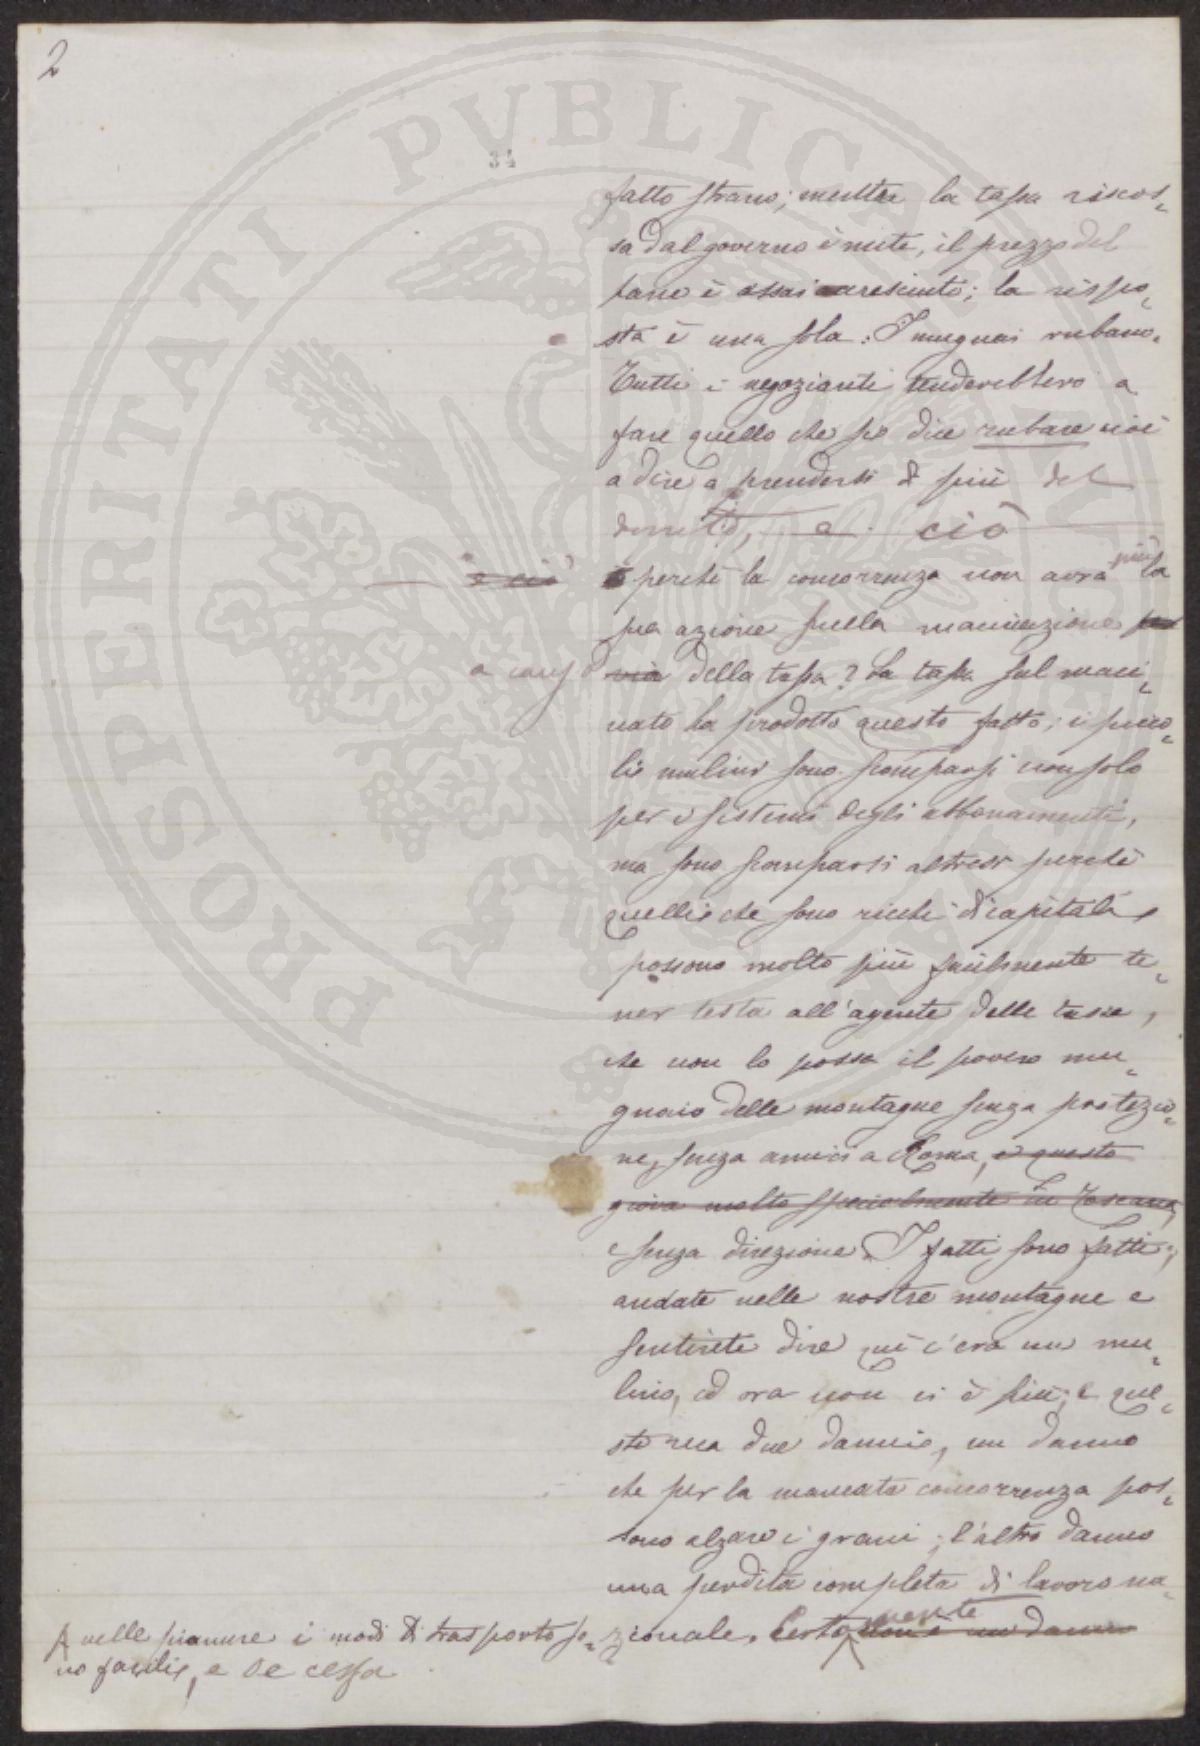 2
34
fatto strano; mentre la tassa riscos-
sa dal governo è mite, il prezzo del
pane è assai cresciuto; la rispo-
sta è una sola: I mugnai rubano.
Tutti i negozianti tenderebbero a
fare quello che si dice rubare cioè
a dire a prendersi di più del
a ciò
e ciò perchè la concorrenza non avrà più la
sua azione sulla macinazione per
a caus via della tassa? La tassa sul maci-
nato ha prodotto questo fatto; i picco-
li mulini sono scomparsi non solo
per i sistemi degli abbonamenti,
ma sono scomparsi altresì perchè
quelli che sono ricchi di capitali,
possono molto più facilmente te-
ner testa all'agente delle tasse,
che non lo possa il povero mu-
gnaio delle montagne senza protezio-
ne, senza amici a Roma, e questo
giova molto specialmente in Toscana,
e senza direzione. I fatti sono fatti;
andate nelle nostre montagne e
sentirete dire quì c'era un mu-
lino, ed ora non ci è più; e que-
sto reca due danni, un danno
che per la mancata concorrenza pos-
sono alzare i grani; l'altro danno
una perdita completa di lavoro na-
zionale. Certamente non è un danno
nelle pianure i modi di trasporto so-
no facili, e se cessa